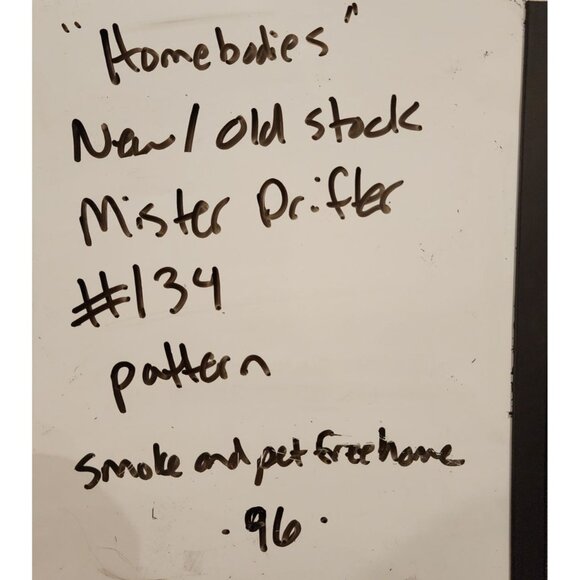 "Homebodies"
New/old stock
Mister Drifter
#134
pattern
smoke and pet free home
·96·